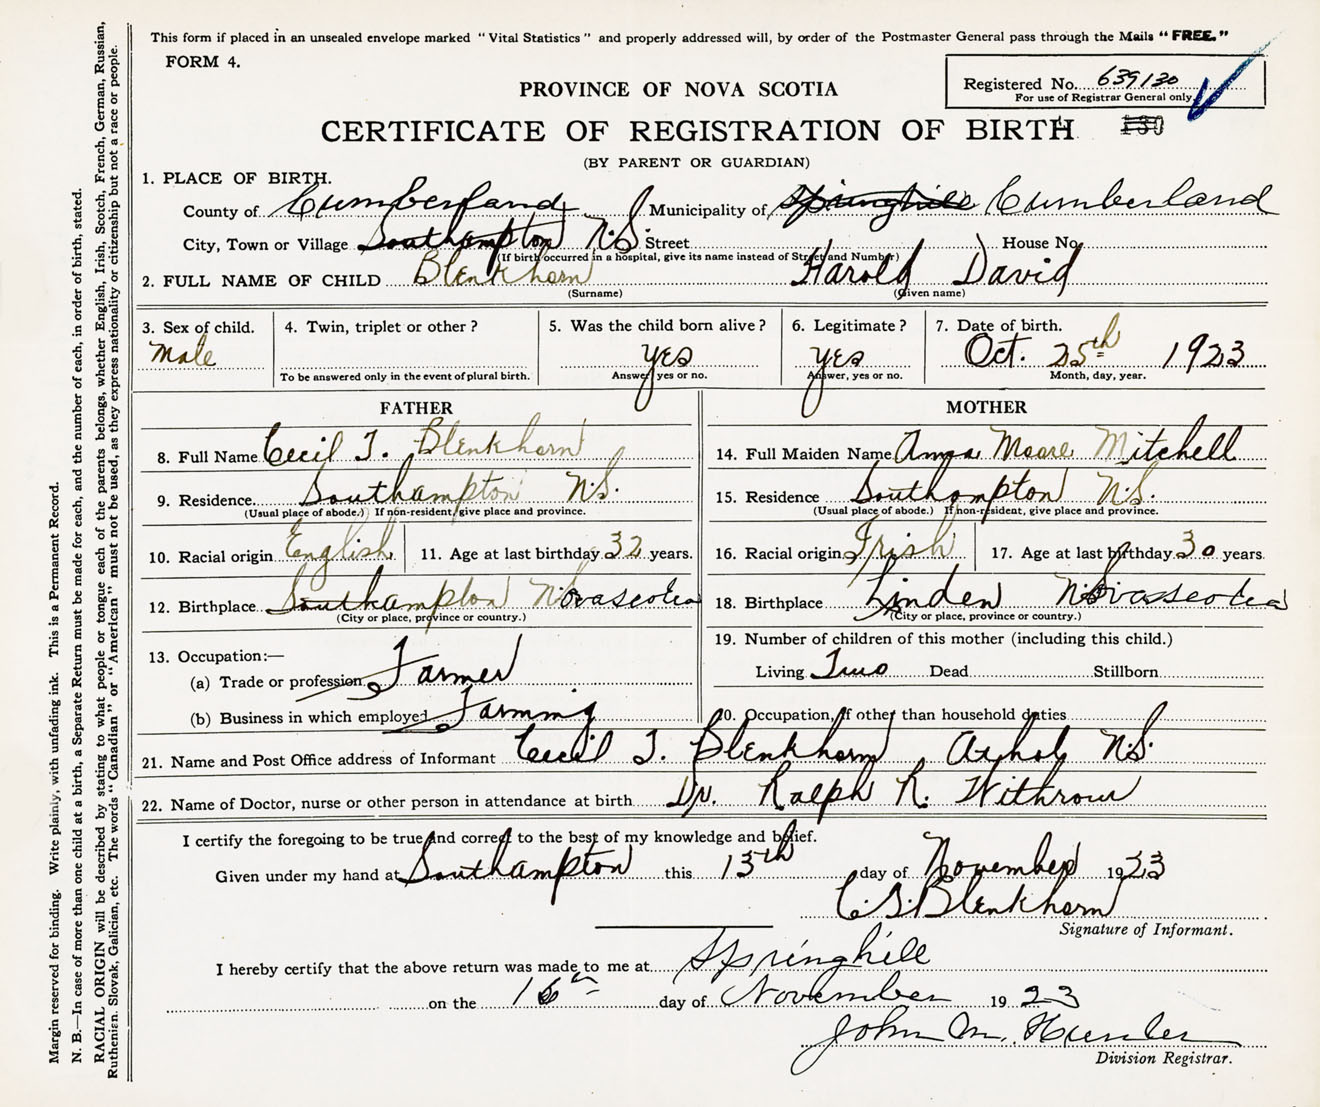 This form if placed in an unsealed envelope marked "Vital Statistics" and properly addressed will, by order of the Postmaster General pass through the Mails "FREE."
FORM 4.
Registered No. 639130
For use of Registrar General only.
PROVINCE OF NOVA SCOTIA
CERTIFICATE OF REGISTRATION OF BIRTH
(BY PARENT OR GUARDIAN)
1. PLACE OF BIRTH.
County of Cumberland Municipality of Springhill Cumberland
City, Town or Village Southampton N.S. Street House No.
(If birth occurred in a hospital, give its name instead of Street and Number)
2. FULL NAME OF CHILD Blenkhorn Harold David
(Surname) (Given name)
3. Sex of child. 4. Twin, triplet or other? 5. Was the child born alive? 6. Legitimate? 7. Date of birth.
Male yes yes Oct. 25th 1923
To be answered only in the event of plural birth. Answer, yes or no. Answer, yes or no. Month, day, year.
FATHER MOTHER
8. Full Name Cecil T. Blenkhorn 14. Full Maiden Name Anna Moore Mitchell
9. Residence Southampton N.S. 15. Residence Southampton N.S.
(Usual place of abode.) If non-resident, give place and province. (Usual place of abode.) If non-resident, give place and province.
10. Racial origin English 11. Age at last birthday 32 years. 16. Racial origin Irish 17. Age at last birthday 30 years.
12. Birthplace Southampton Novascotia 18. Birthplace Linden Novascotia
(City or place, province or country.) (City or place, province or country.)
13. Occupation:— 19. Number of children of this mother (including this child.)
(a) Trade or profession Farmer Living Two Dead Stillborn
(b) Business in which employed Farming 20. Occupation, if other than household duties
21. Name and Post Office address of Informant Cecil T. Blenkhorn Athol N.S.
22. Name of Doctor, nurse or other person in attendance at birth Dr. Ralph R. Withrow
I certify the foregoing to be true and correct to the best of my knowledge and belief.
Given under my hand at Southampton this 13th day of November 1923
C.T. Blenkhorn
Signature of Informant.
I hereby certify that the above return was made to me at Springhill
on the 16th day of November 1923
John M. Hunter
Division Registrar.
Margin reserved for binding. Write plainly, with unfading ink. This is a Permanent Record.
N. B.—In case of more than one child at a birth, a Separate Return must be made for each, and the number of each, in order of birth, stated.
RACIAL ORIGIN will be described by stating to what people or tongue each of the parents belongs, whether English, Irish, Scotch, French, German, Russian,
Ruthenian, Slovak, Galician, etc. The words "Canadian" or "American" must not be used, as they express nationality or citizenship but not a race or people.